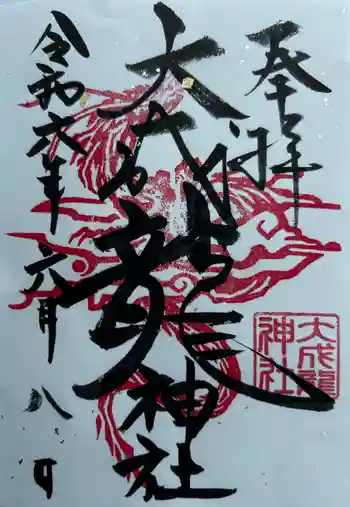 奉拝
大成龍神社
令和六年
六月八日
大成龍
神社